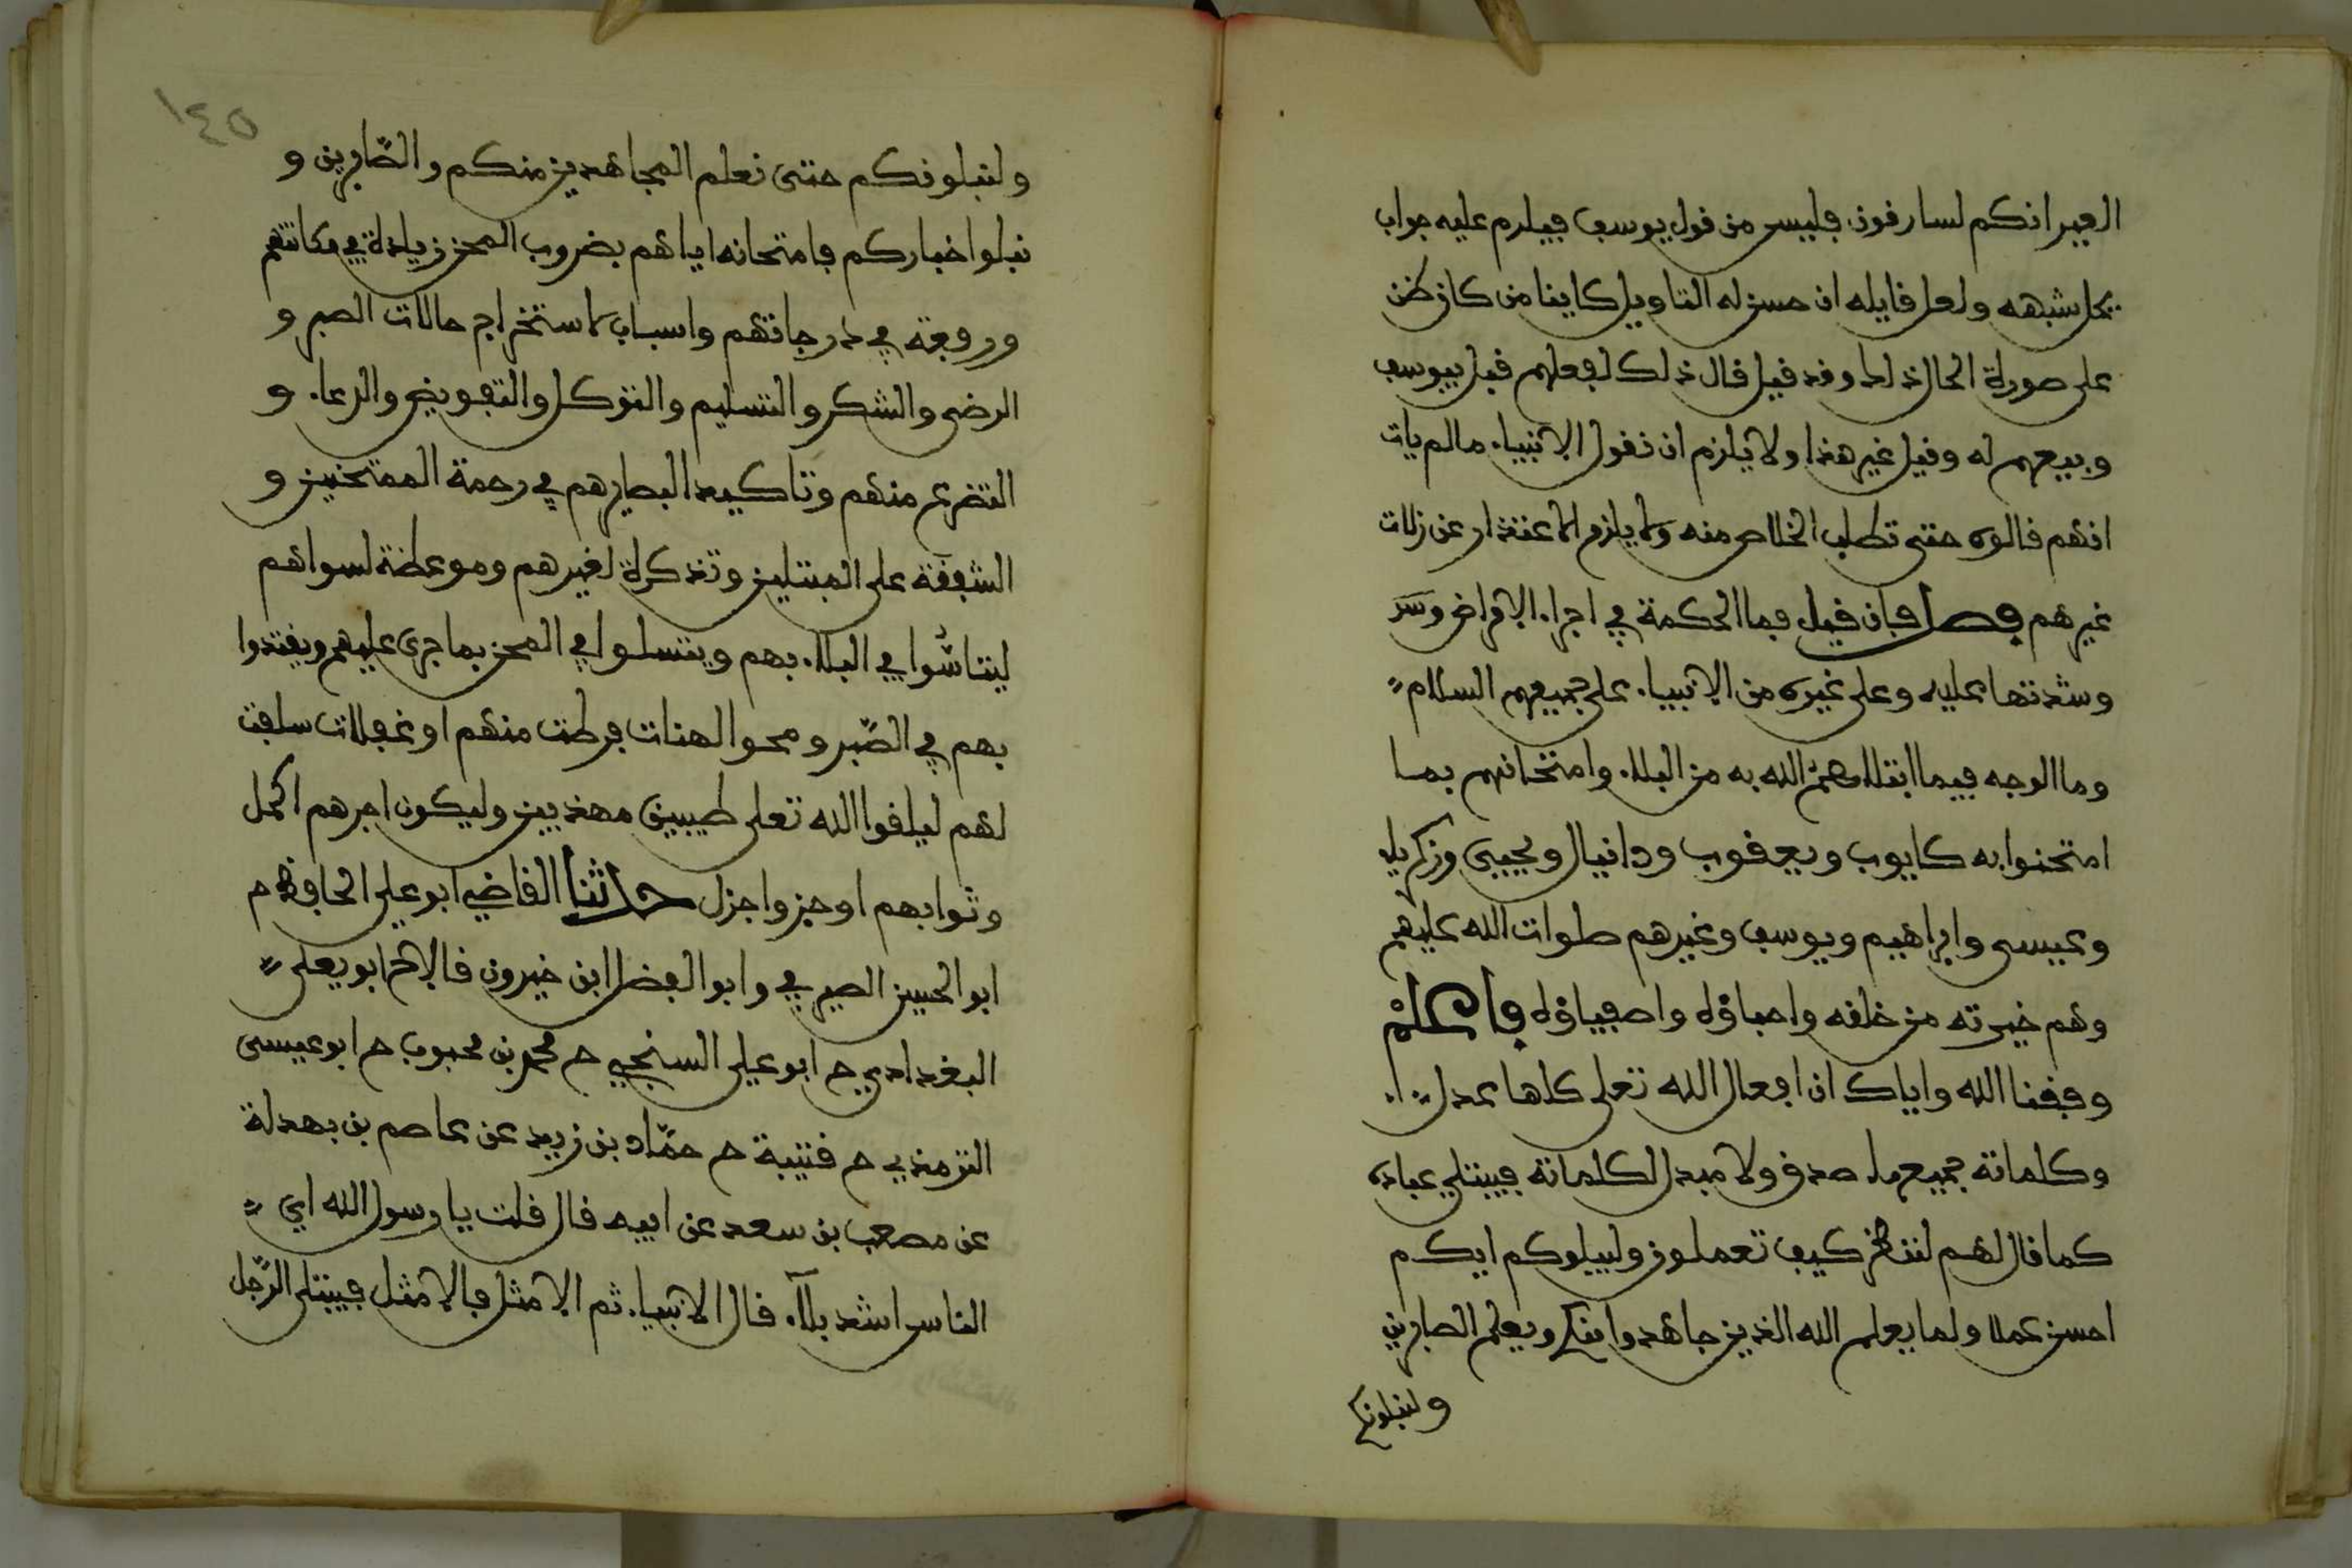 العير انكم لسارقون فليس من قول يوسف فيلزم عليه جواب
يحل شبهه ولعل قايله ان حسن له التاويل كاينا من كان ظن
على صورة الحال ذلك وقد قيل قال ذلك لفعلهم قبل بيوسف
وبيعهم له وقيل غير هذا ولا يلزم ان نقول الانبياء ما لم يات
انهم قالوه حتى تطلب الخلاص منه ولا يلزم الاعتذار عن زلات
غيرهم فصل فان قيل فما الحكمة في اجراء الامراض و
وشدتها عليه وعلى غيره من الانبياء على جميعهم السلام
وما الوجه فيما ابتلاهم الله به من البلاء وامتحانهم بما
امتحنوا به كايوب ويعقوب ودانيال ويحيى وزكرياء
وعيسى وابراهيم ويوسف وغيرهم صلوات الله عليهم
وهم خيرته من خلقه واحباؤه واصفياؤه فاعلم
وفقنا الله واياك ان افعال الله تعلى كلها عدل
وكلماته جميعها صدق ولا مبدل لكلماته فيبتلي عباده
كما قال لهم لننظر كيف تعملون وليبلوكم ايكم
احسن عملا ولما يعلم الله الذين جاهدوا منكم ويعلم الصابرين
ولنبلونكم
١٤٥
ولنبلونكم حتى نعلم المجاهدين منكم والصّابرين و
نبلوا اخباركم فامتحانه اياهم بضروب المحن زيادة في مكانتهم
ورفعة في درجاتهم واسباب لاستخراج حالات الصبر و
الرضى والشكر والتسليم والتوكل والتفويض والدعاء و
التضرع منهم وتاكيد البصايرهم في رحمة الممتحنين و
الشفقة على المبتلين وتذكرة لغيرهم وموعظة لسواهم
ليتاسّوا في البلاء بهم ويتسلوا في المحن بما جرى عليهم ويقتدوا
بهم في الصّبر ومحو الهنات فرطت منهم او غفلات سلفت
لهم ليلقوا الله تعلى طيبين مهذبين وليكون اجرهم اكمل
وثوابهم اوجز واجزل حدثنا القاضي ابو علي الحافظ ح
ابو الحسين الصيرفي وابو الفضل ابن خيرون قالا نا ابو يعلى
البغدادي ح ابو علي السنجي ح محمد بن محبوب ح ابو عيسى
الترمذي ح قتيبة ح حمّاد بن زيد عن عاصم بن بهدلة
عن مصعب بن سعد عن ابيه قال قلت يا رسول الله اي
الناس اشد بلاء قال الانبياء ثم الامثل فالامثل فيبتلى الرّجل